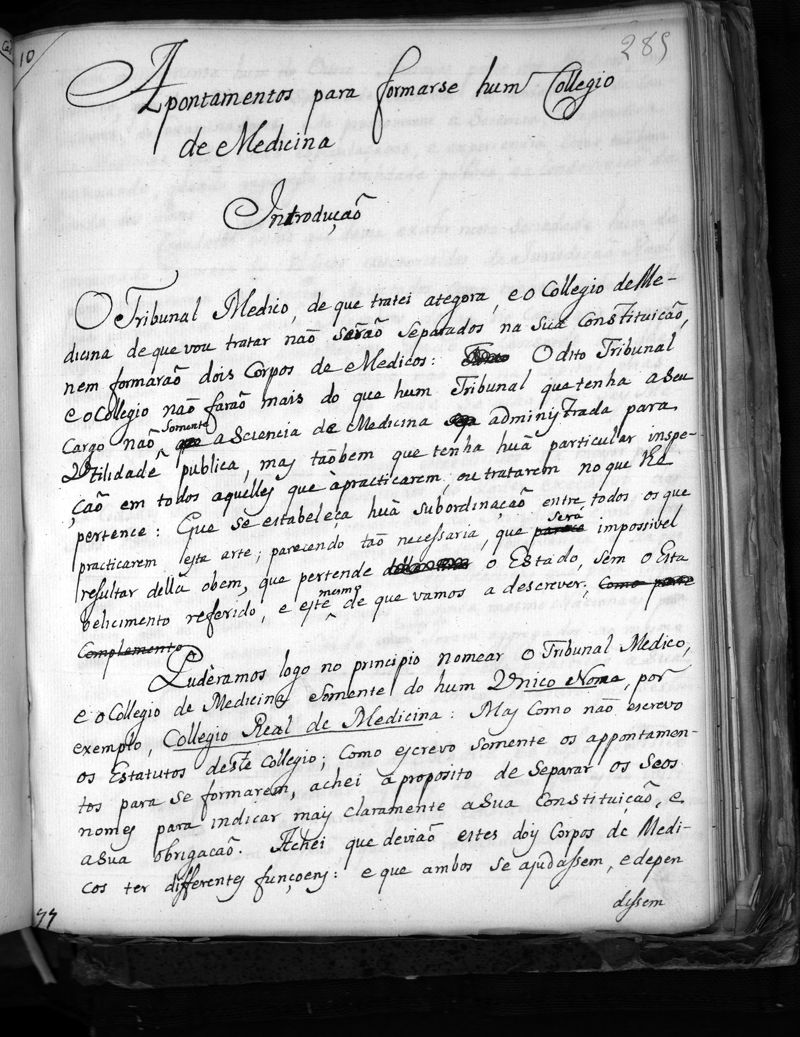 10
285
Apontamentos para formarse hum Collegio
de Medicina
Introdução
O Tribunal Medico, de que tratei ategora, e o Collegio de Me-
dicina de que vou tratar não serão separados na sua Constituição,
nem formarão dois Corpos de Medicos: O dito Tribunal
e o Collegio não farão mais do que hum Tribunal que tenha a Seu
Cargo não somente a Sciencia de Medicina administrada para
Utilidade publica, mas tãobem que tenha huã particular inspe-
ção em todos aquelles que à practicarem, ou tratarem no que lhe
pertence: Que se estabeleça huã subordinação entre todos os que
practicarem esta arte; parecendo tão necessaria, que será impossivel
resultar della obem, que pertende o Estado, sem o Esta
belicimento referido, e este mesmo de que vamos a descrever, Como para
Complemento
Pudèramos logo no principio nomear o Tribunal Medico,
e o Collegio de Medicina somente do hum Unico Nome, por
exemplo, Collegio Real de Medicina: Mas Como não escrevo
os Estatutos deste Collegio; Como escrevo somente os appontamen-
tos para se formarem, achei a proposito de Separar os Seos
nomes para indicar mais claramente a Sua Constituição, e
a Sua obrigacaõ. Achei que devião estes dois Corpos de Medi-
cos ter differentes funçoens: e que ambos se ajudassem, e depen
dessem
77